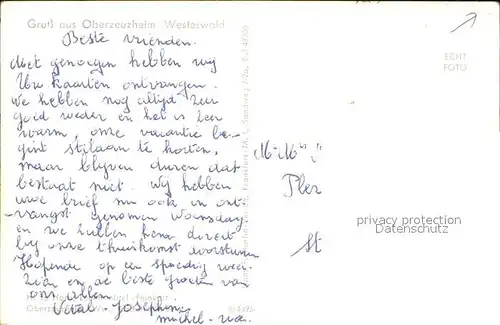 Gruß aus Oberzeuzheim Westerwald
Beste vrienden.
Met genoegen hebben wij
Uw kaarten ontvangen.
We hebben nog altijd zeer
goed weder en het is zeer
warm, onze vacantie be-
gint stilaan te korten,
maar blijven duren dat
bestaat niet. Wij hebben
uwe brief nu ook in ont-
vangst genomen Woensdag
en we zullen hem direct
bij onze thuiskomst doorsturen
Hopende op een spoedig weer
zien en de beste groeten van
ons allen
Vital - Josephine
Michel -
ECHT
FOTO
M. M
privacy protection
Datenschutz